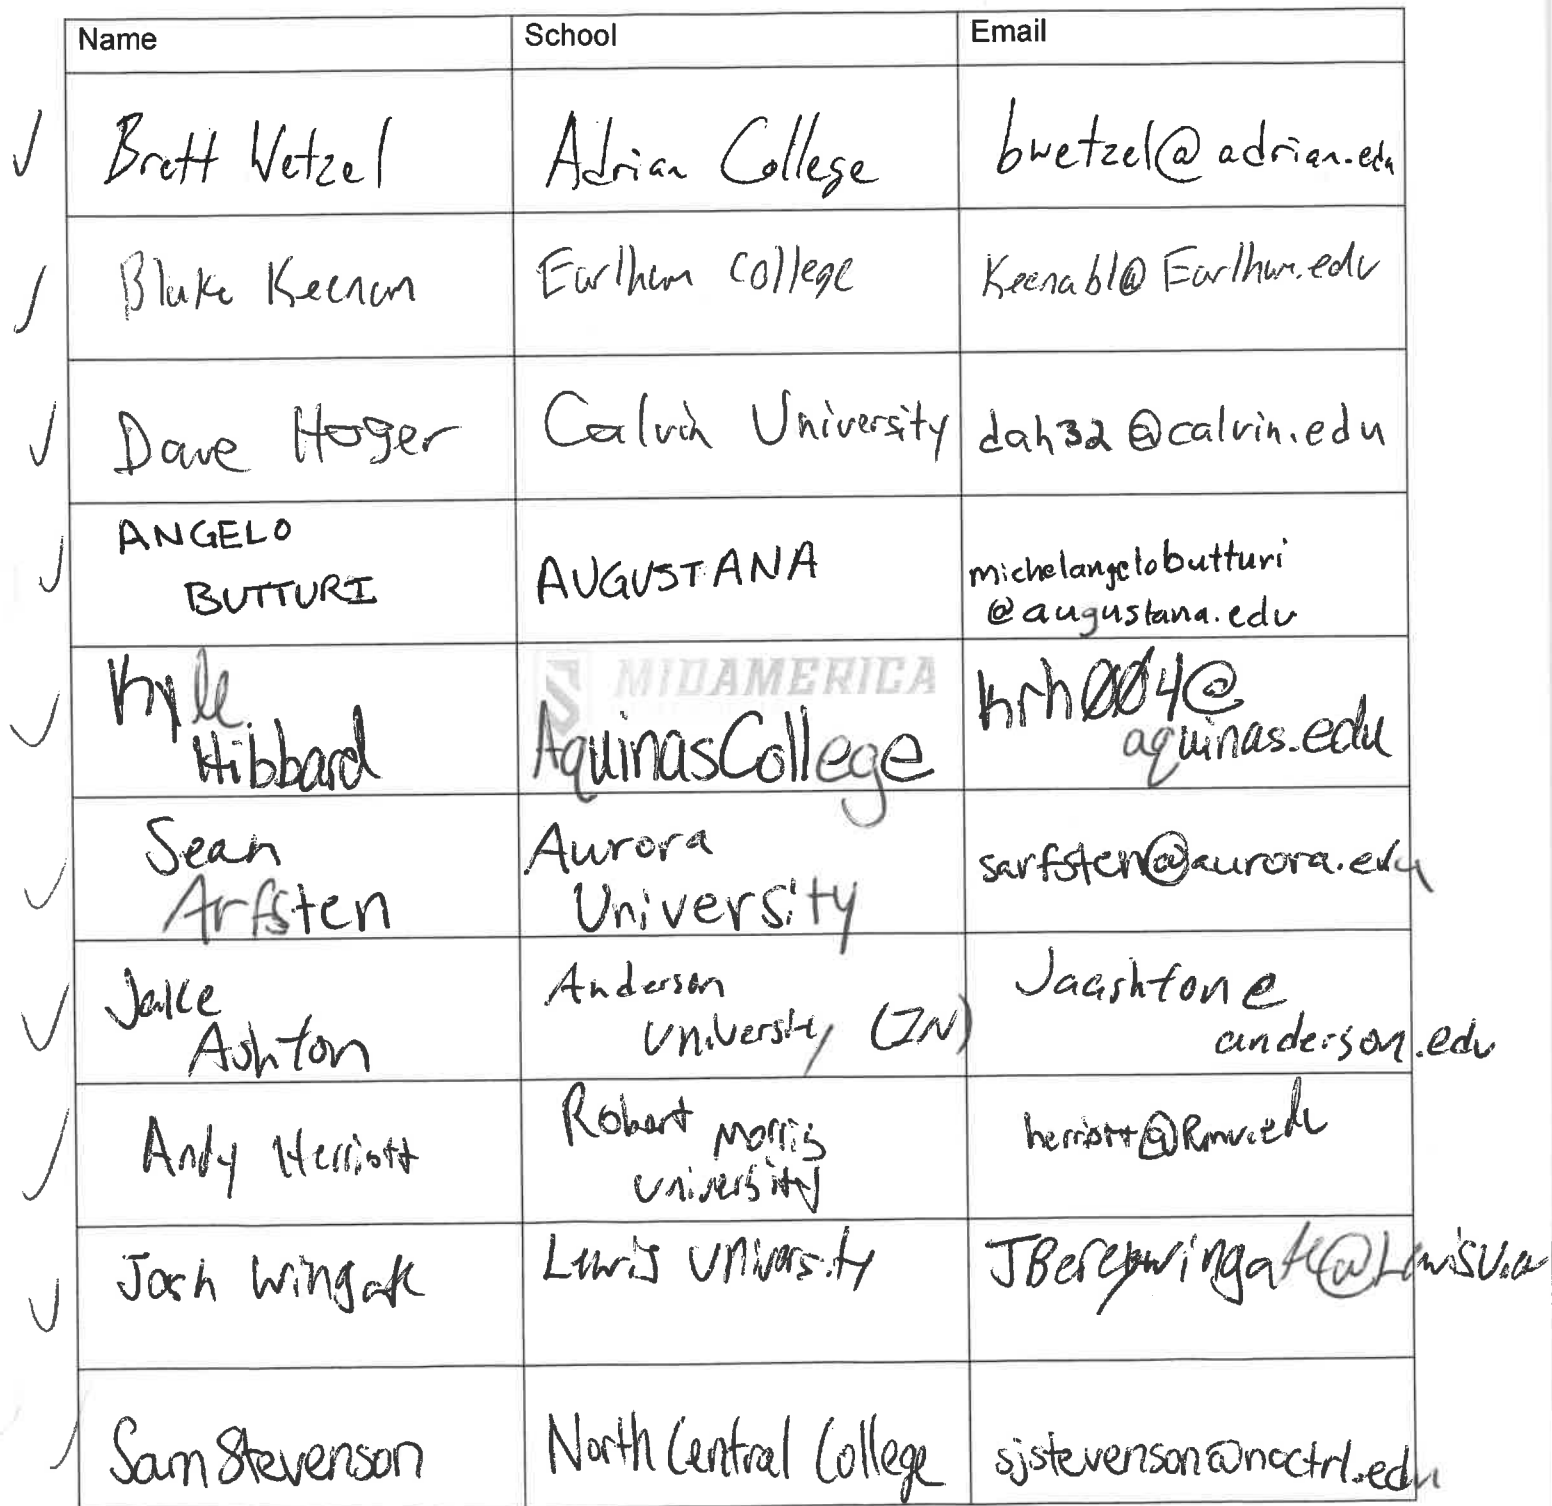 Name School Email
Brett Wetzel Adrian College bwetzel@adrian.edu
Blake Keenan Earlham College Keenabl@Earlham.edu
Dave Hoger Calvin University dah32@calvin.edu
ANGELO
BUTTURI AUGUSTANA michelangelobutturi
@augustana.edu
MIDAMERICA
Kyle
Hibbard Aquinas College krh004@
aquinas.edu
Sean
Arfsten Aurora
University sarfsten@aurora.edu
Jake
Ashton Anderson
University (IN) Jaashton@
anderson.edu
Andy Herriott Robert Morris
University herriott@Rmu.edu
Josh Wingate Lewis University
Sam Stevenson North Central College sjstevenson@noctrl.edu